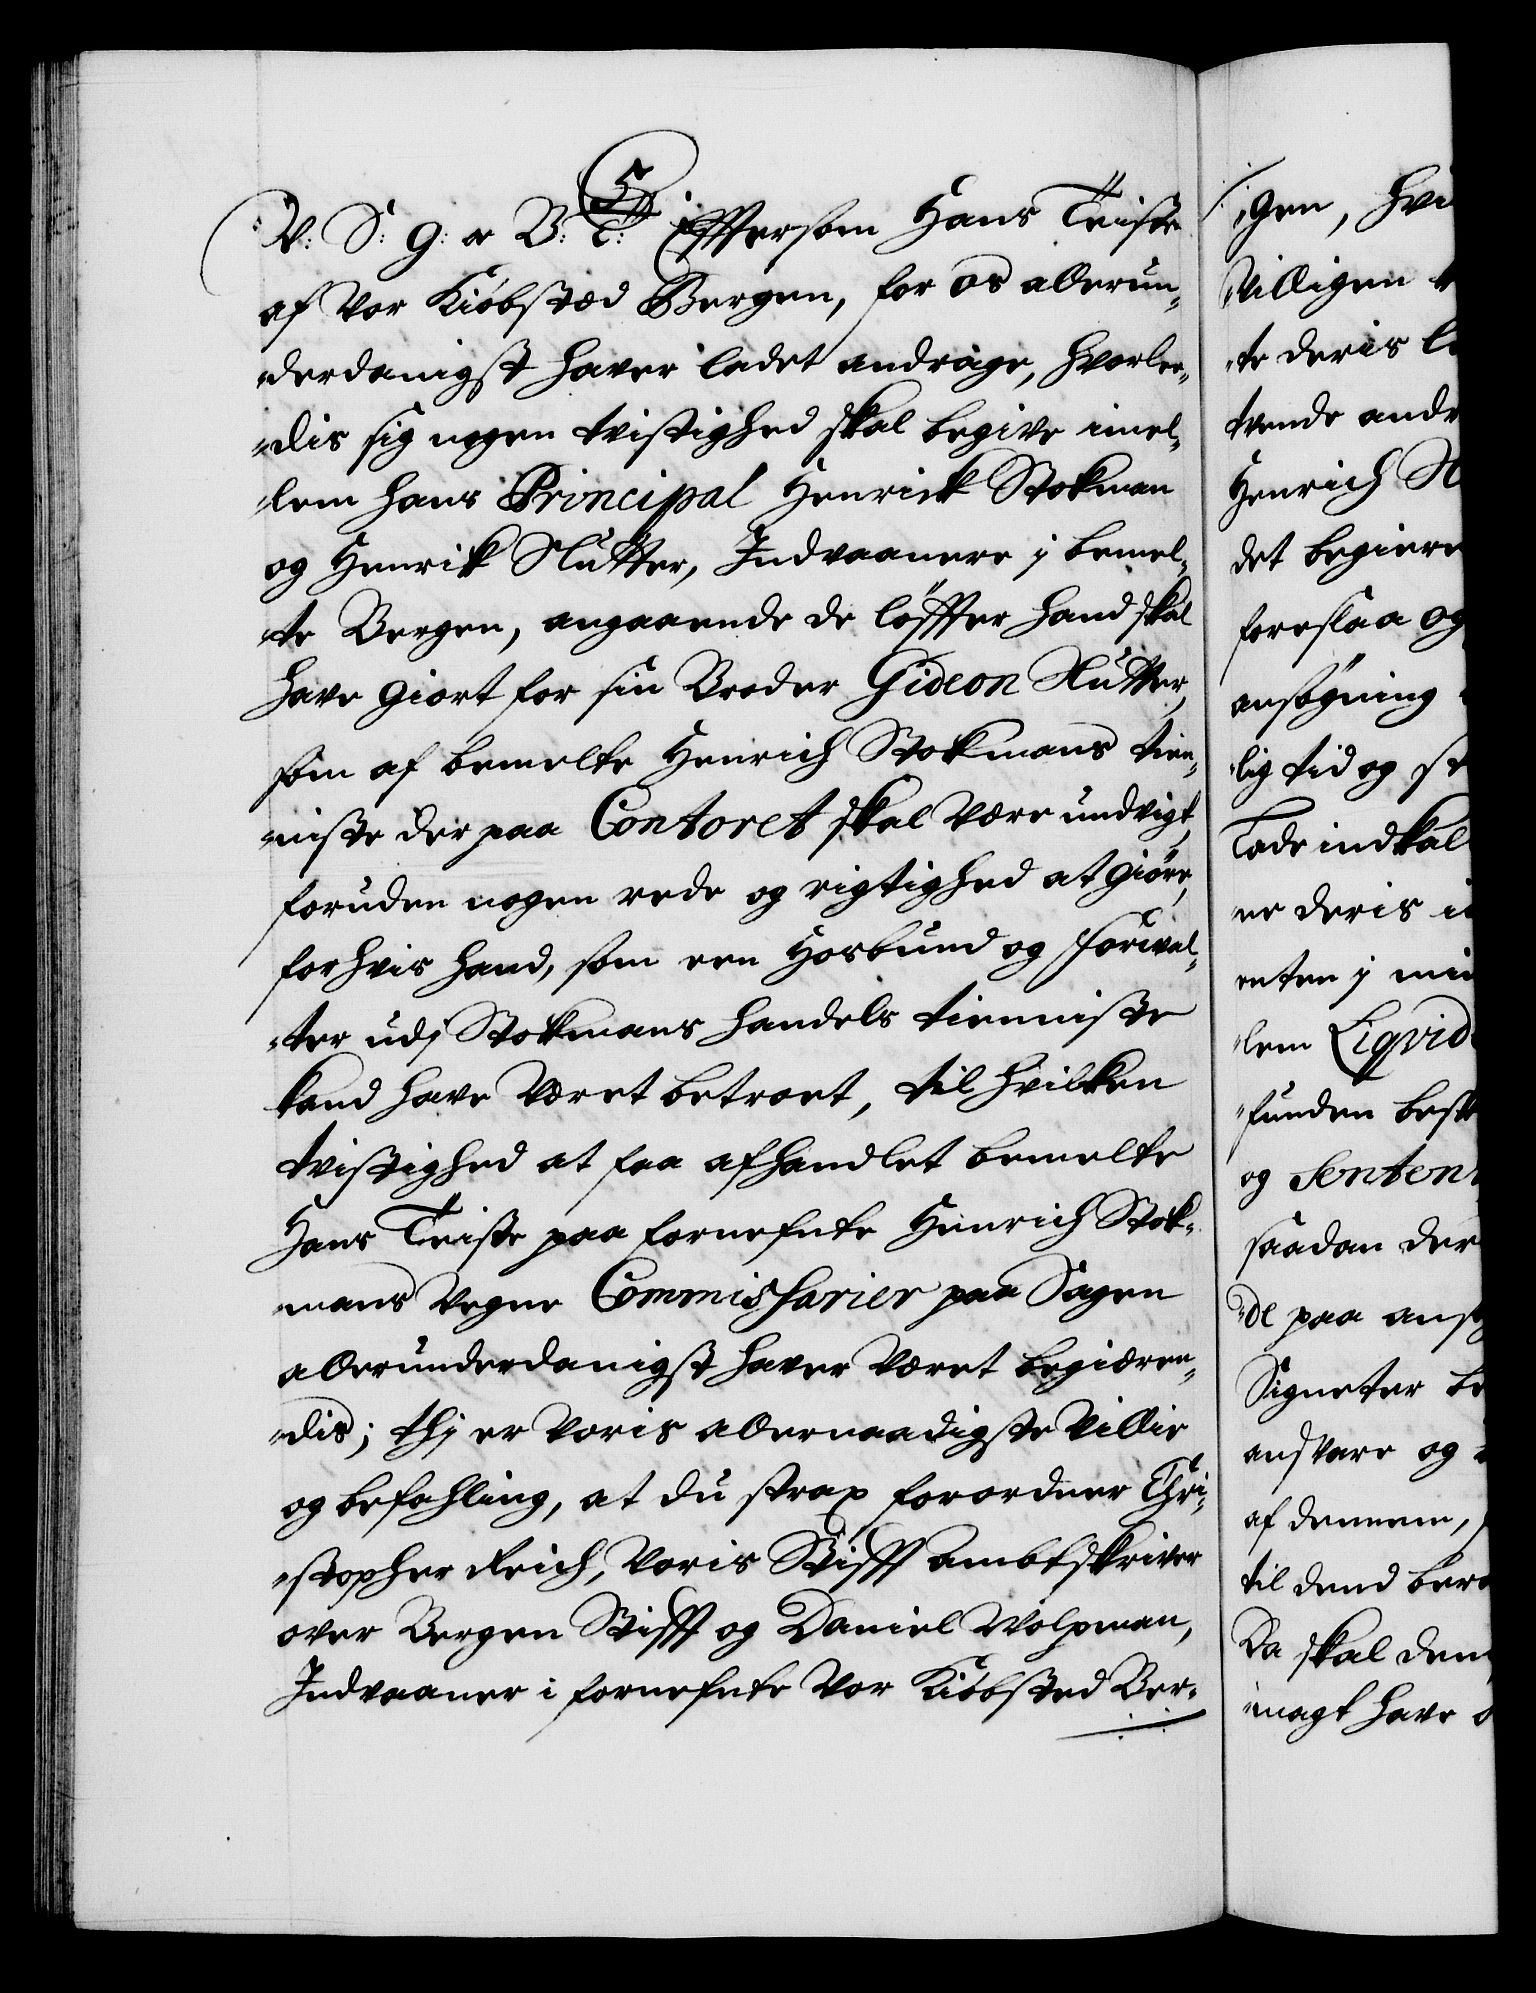 5
V: S: G: oc B: T: Effterson Hans Teiste
af Vor Kiöbsted Bergen, for os allerun-
derdanigst haver ladet andrage, hvorlee-
dis sig nogen tvistighed skal begive imel-
lem hans Principal Henrick Stokman
og Henrik Nutter, Indvaanere j bemel-
te Bergen, angaaende de löffter hand skal
have giort for sin Broder Gideon Nutter,
som af bemelte Henrich Stokmans tien-
niste der paa Contoret skal være undvigt,
foruden nogen rede og rigtighed at giöre,
for hvis hand, som een Hosbund og Forval-
ter udj Stokmans handels tienniste
kand have været betroet, til hvilken
tvistighed at faa afhandlet bemelte
Hans Teiste paa fornefnte Henrich Stok-
mans vegne Commissarier paa Sagen
allerunderdanigst haver været begiæren-
dis; thj er Voris allernaadigste Villie
og befahling, at du strax forordner Chri-
stopher Reich, Voris Stifft ambtskriver
over Bergen Stifft og Daniel Wolpman,
Indvaaner i fornefnte Vor Kiöbsted Ber-
gen,
Villigen
te deris
tvende
Henrich
det begiere
foreslaa og
ansögning
lig tid og
Lade indkal
er deris
enten j
lem Liqvid
funden
og Senten
saadan der
de paa
Signeter
andsvare og
af dennem,
til dend
Da skal dem
magt have